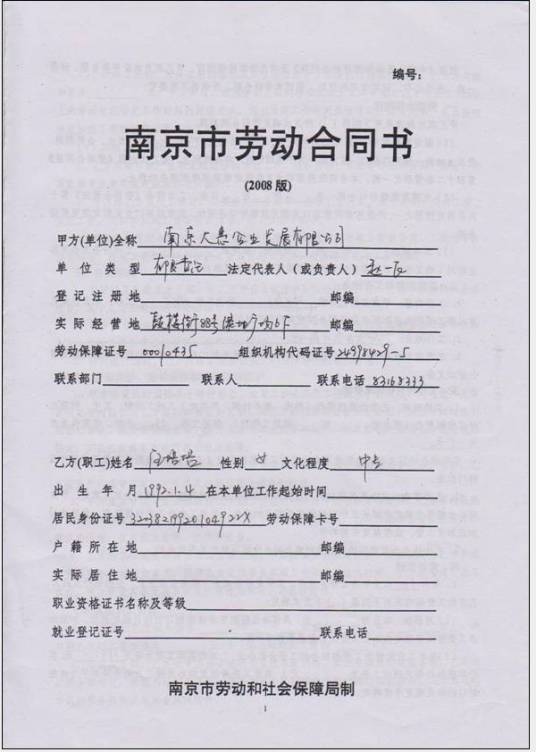 编号：
南京市劳动合同书
(2008 版)
甲方(单位)全称 南京大惠企业发展有限公司
单位类型 有限责任 法定代表人（或负责人）
登记注册地 邮编
实际经营地 鼓楼街88号 邮编
劳动保障证号 00010435 组织机构代码证号 24998429-5
联系部门 联系人 联系电话 83168333
乙方(职工)姓名 性别 女 文化程度 中专
出生年月 1992.1.4 在本单位工作起始时间
居民身份证号 劳动保障卡号
户籍所在地 邮编
实际居住地 邮编
职业资格证书名称及等级
就业登记证号 联系电话
南京市劳动和社会保障局制
1